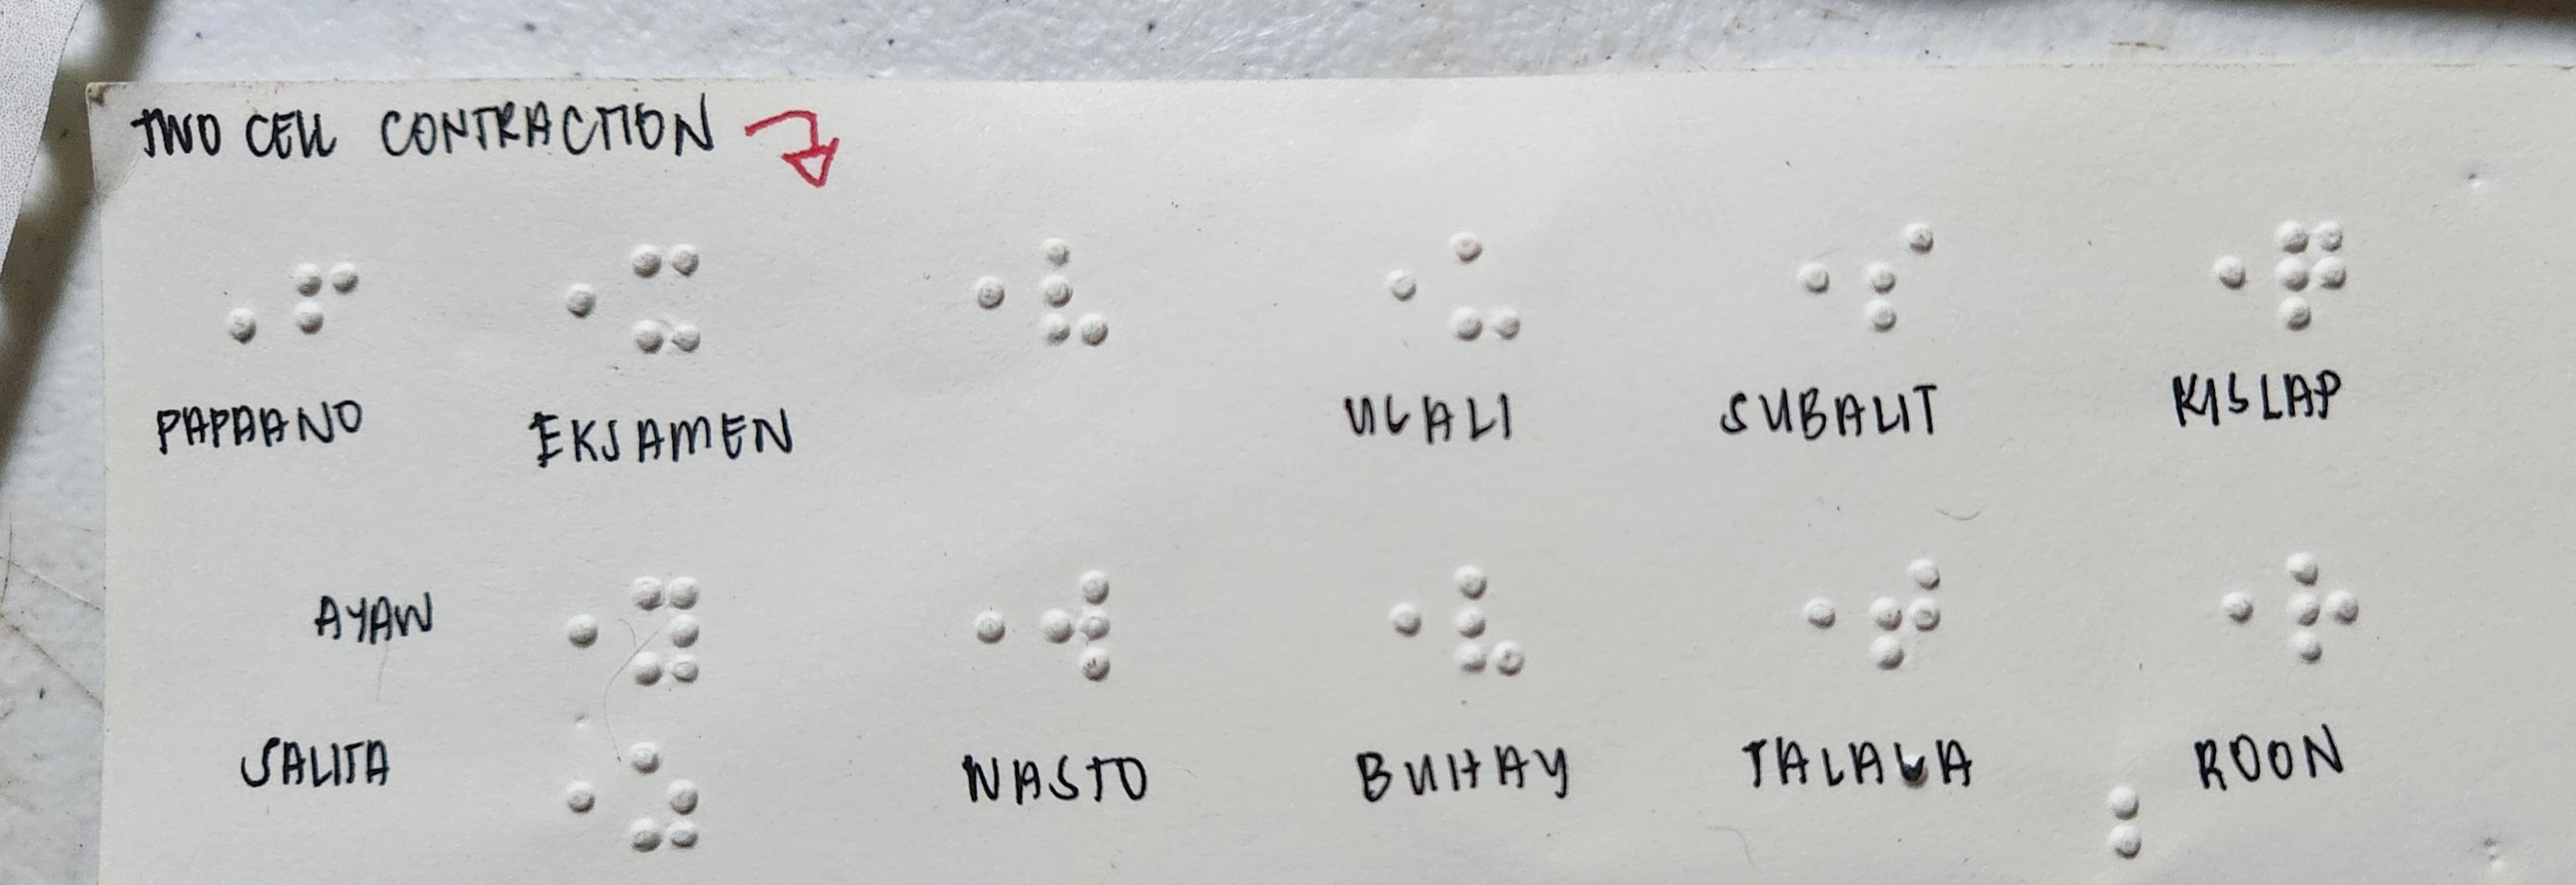 TWO CELL CONTRACTION
PAPAANO EKSAMEN UGALI SUBALIT KISLAP
AYAW
SALITA WASTO BUHAY TALAGA ROON